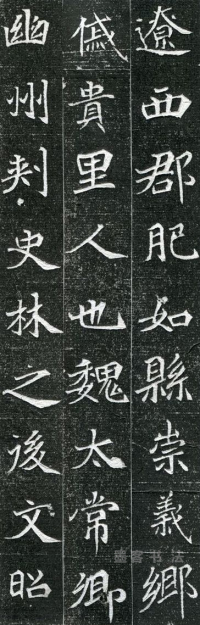 遼西郡肥如縣崇義鄉
儀貴里人也魏太常卿
幽州刺史林之後文昭